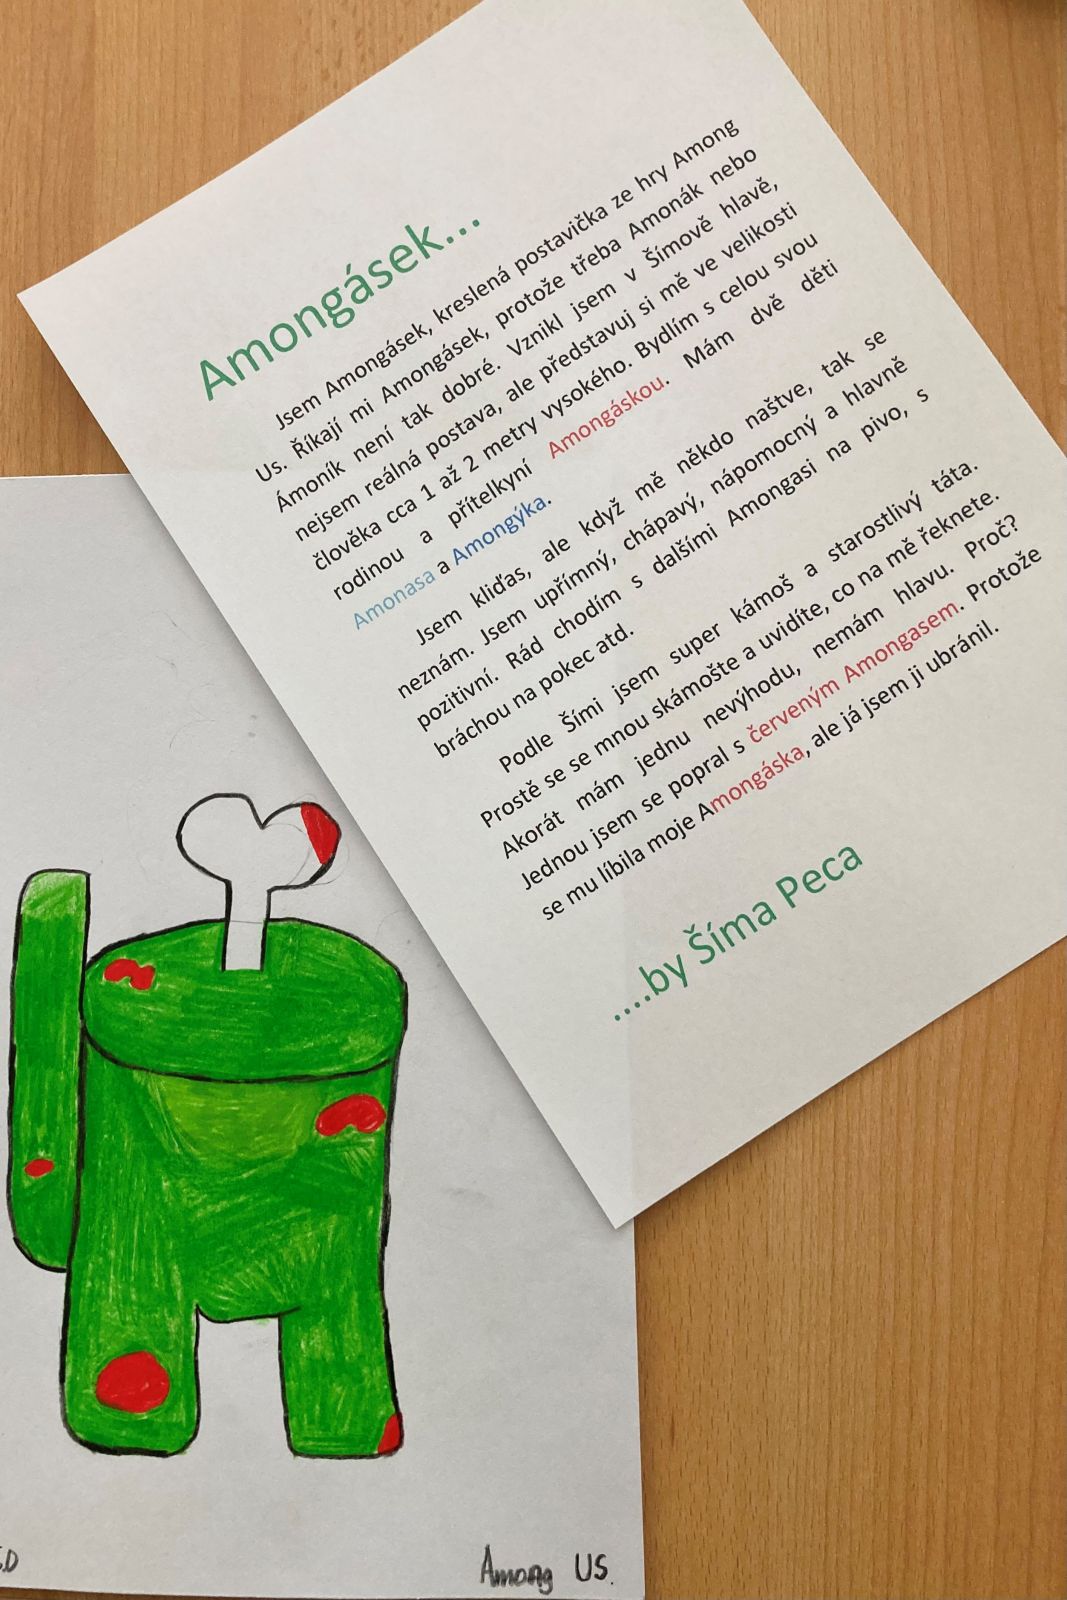 Amongásek...
Jsem Amongásek, kreslená postavička ze hry Among
Us. Říkají mi Amongásek, protože třeba Amonák nebo
Ámoník není tak dobré. Vznikl jsem v Šímově hlavě,
nejsem reálná postava, ale představuj si mě ve velikosti
člověka cca 1 až 2 metry vysokého. Bydlím s celou svou
rodinou a přítelkyní Amongáskou. Mám dvě děti
Amonasa a Amongýka.
Jsem kliďas, ale když mě někdo naštve, tak se
neznám. Jsem upřímný, chápavý, nápomocný a hlavně
pozitivní. Rád chodím s dalšími Amongasi na pivo, s
bráchou na pokec atd.
Podle Šími jsem super kámoš a starostlivý táta.
Prostě se se mnou skámošte a uvidíte, co na mě řeknete.
Akorát mám jednu nevýhodu, nemám hlavu. Proč?
Jednou jsem se popral s červeným Amongasem. Protože
se mu líbila moje Amongáska, ale já jsem ji ubránil.
....by Šíma Peca
Among US.